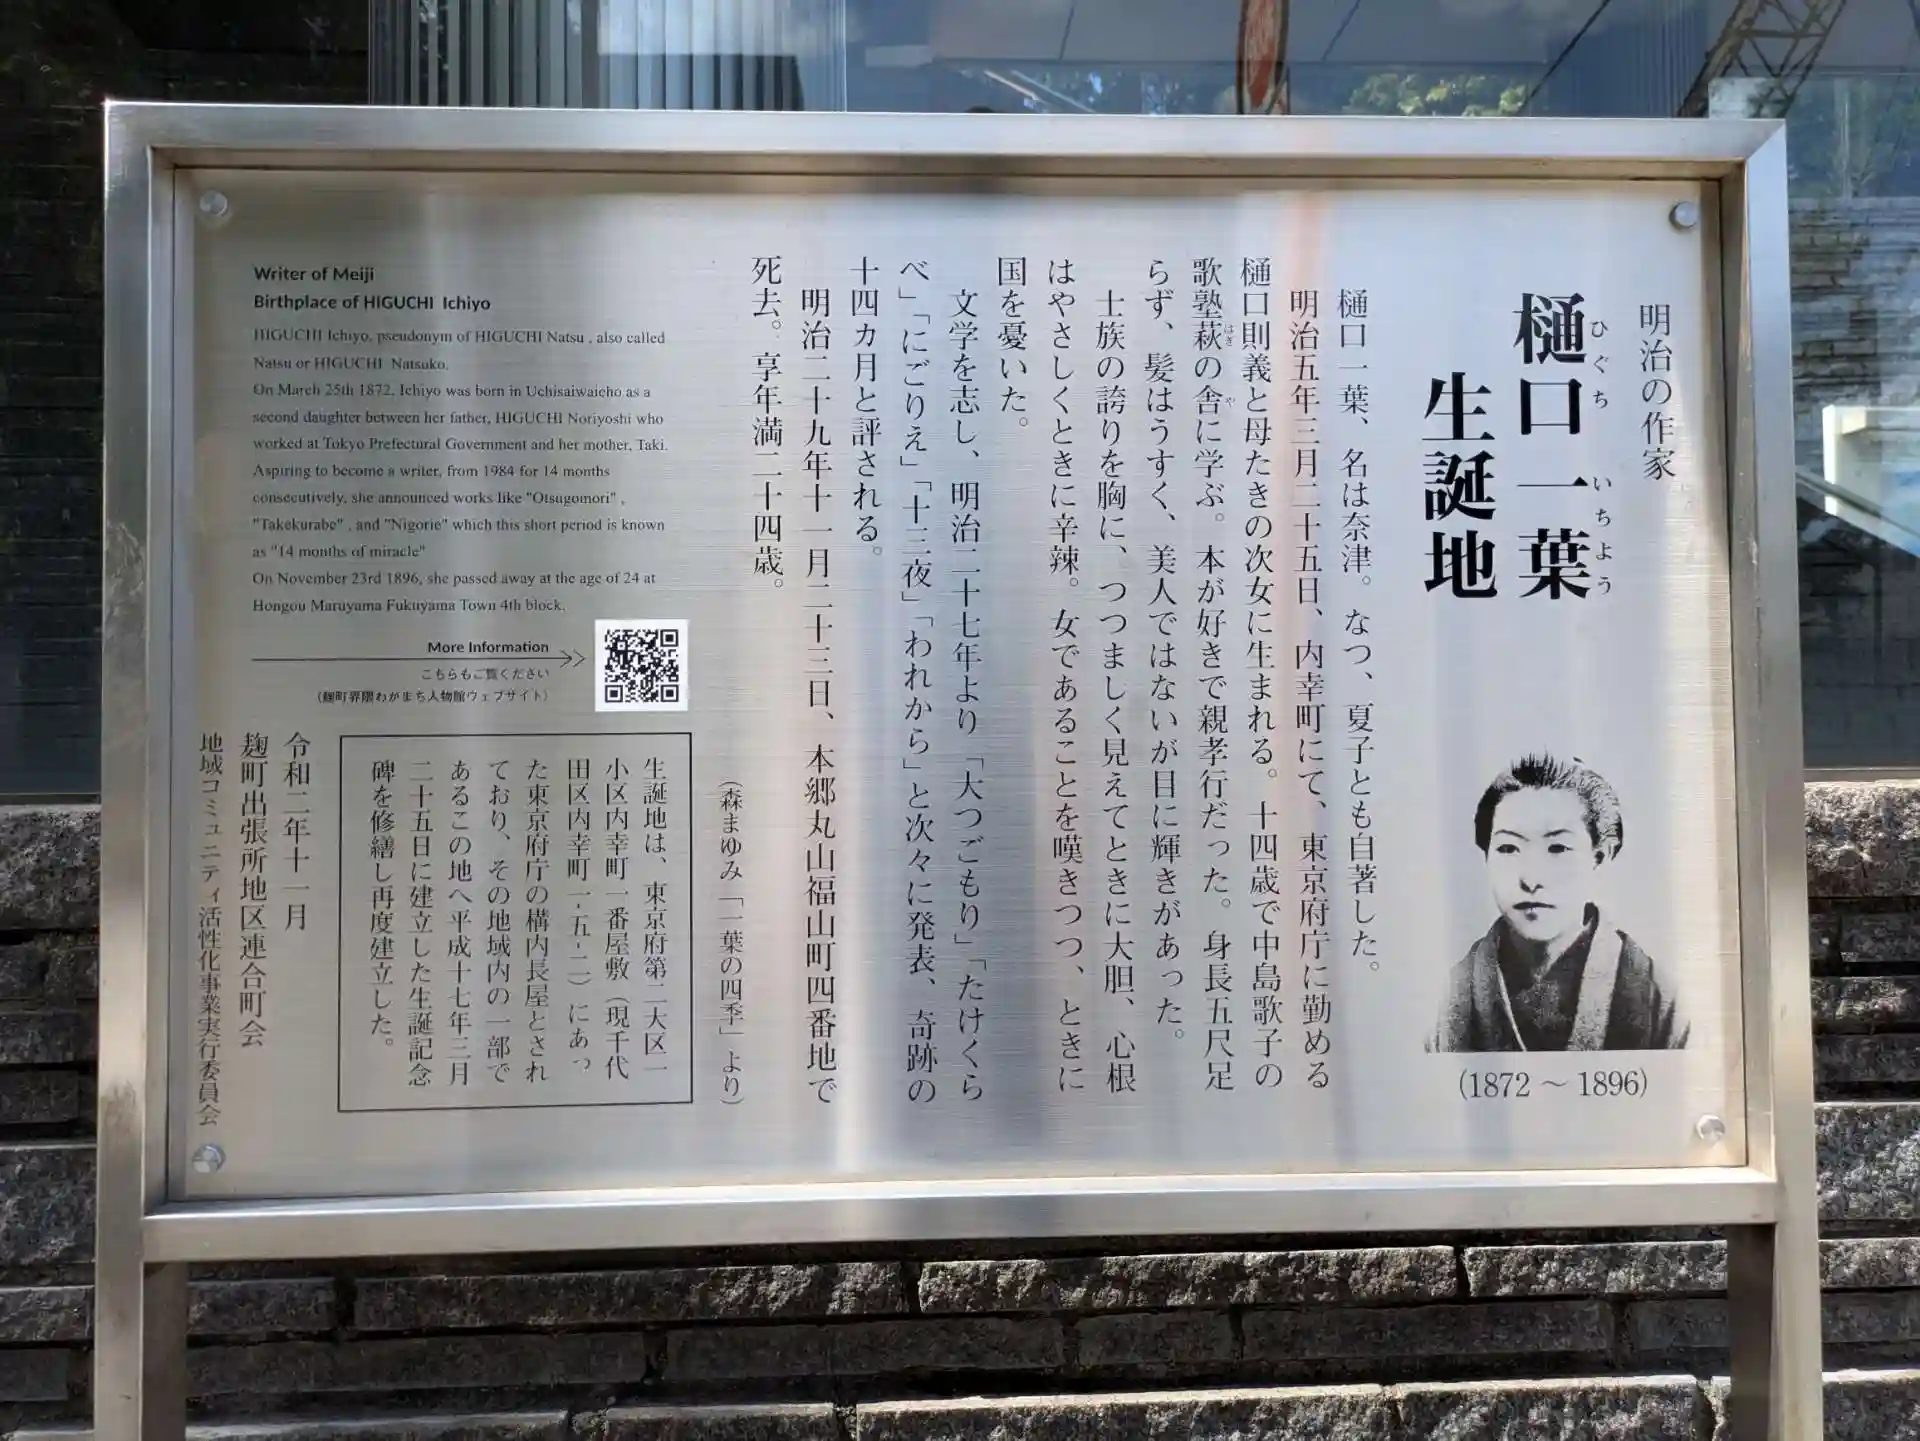 明治の作家
樋口一葉
ひぐち いちよう
生誕地
(1872 ～ 1896)
樋口一葉、名は奈津。なつ、夏子とも自著した。
明治五年三月二十五日、内幸町にて、東京府庁に勤める
樋口則義と母たきの次女に生まれる。十四歳で中島歌子の
歌塾萩の舎に学ぶ。本が好きで親孝行だった。身長五尺足
はぎ や
らず、髪はうすく、美人ではないが目に輝きがあった。
士族の誇りを胸に、つつましく見えてときに大胆、心根
はやさしくときに辛辣。女であることを嘆きつつ、ときに
国を憂いた。
文学を志し、明治二十七年より「大つごもり」「たけくら
べ」「にごりえ」「十三夜」「われから」と次々に発表、奇跡の
十四カ月と評される。
明治二十九年十一月二十三日、本郷丸山福山町四番地で
死去。享年満二十四歳。
（森まゆみ「一葉の四季」より）
Writer of Meiji
Birthplace of HIGUCHI Ichiyo
HIGUCHI Ichiyo, pseudonym of HIGUCHI Natsu , also called
Natsu or HIGUCHI Natsuko.
On March 25th 1872, Ichiyo was born in Uchisaiwaicho as a
second daughter between her father, HIGUCHI Noriyoshi who
worked at Tokyo Prefectural Government and her mother, Taki.
Aspiring to become a writer, from 1984 for 14 months
consecutively, she announced works like "Otsugomori" ,
"Takekurabe" , and "Nigorie" which this short period is known
as "14 months of miracle"
On November 23rd 1896, she passed away at the age of 24 at
Hongou Maruyama Fukuyama Town 4th block.
More Information
こちらもご覧ください
（麹町界隈わがまち人物館ウェブサイト）
生誕地は、東京府第二大区一
小区内幸町一番屋敷（現千代
田区内幸町一-五-二）にあっ
た東京府庁の構内長屋とされ
ており、その地域内の一部で
あるこの地へ平成十七年三月
二十五日に建立した生誕記念
碑を修繕し再度建立した。
令和二年十一月
麹町出張所地区連合町会
地域コミュニティ活性化事業実行委員会